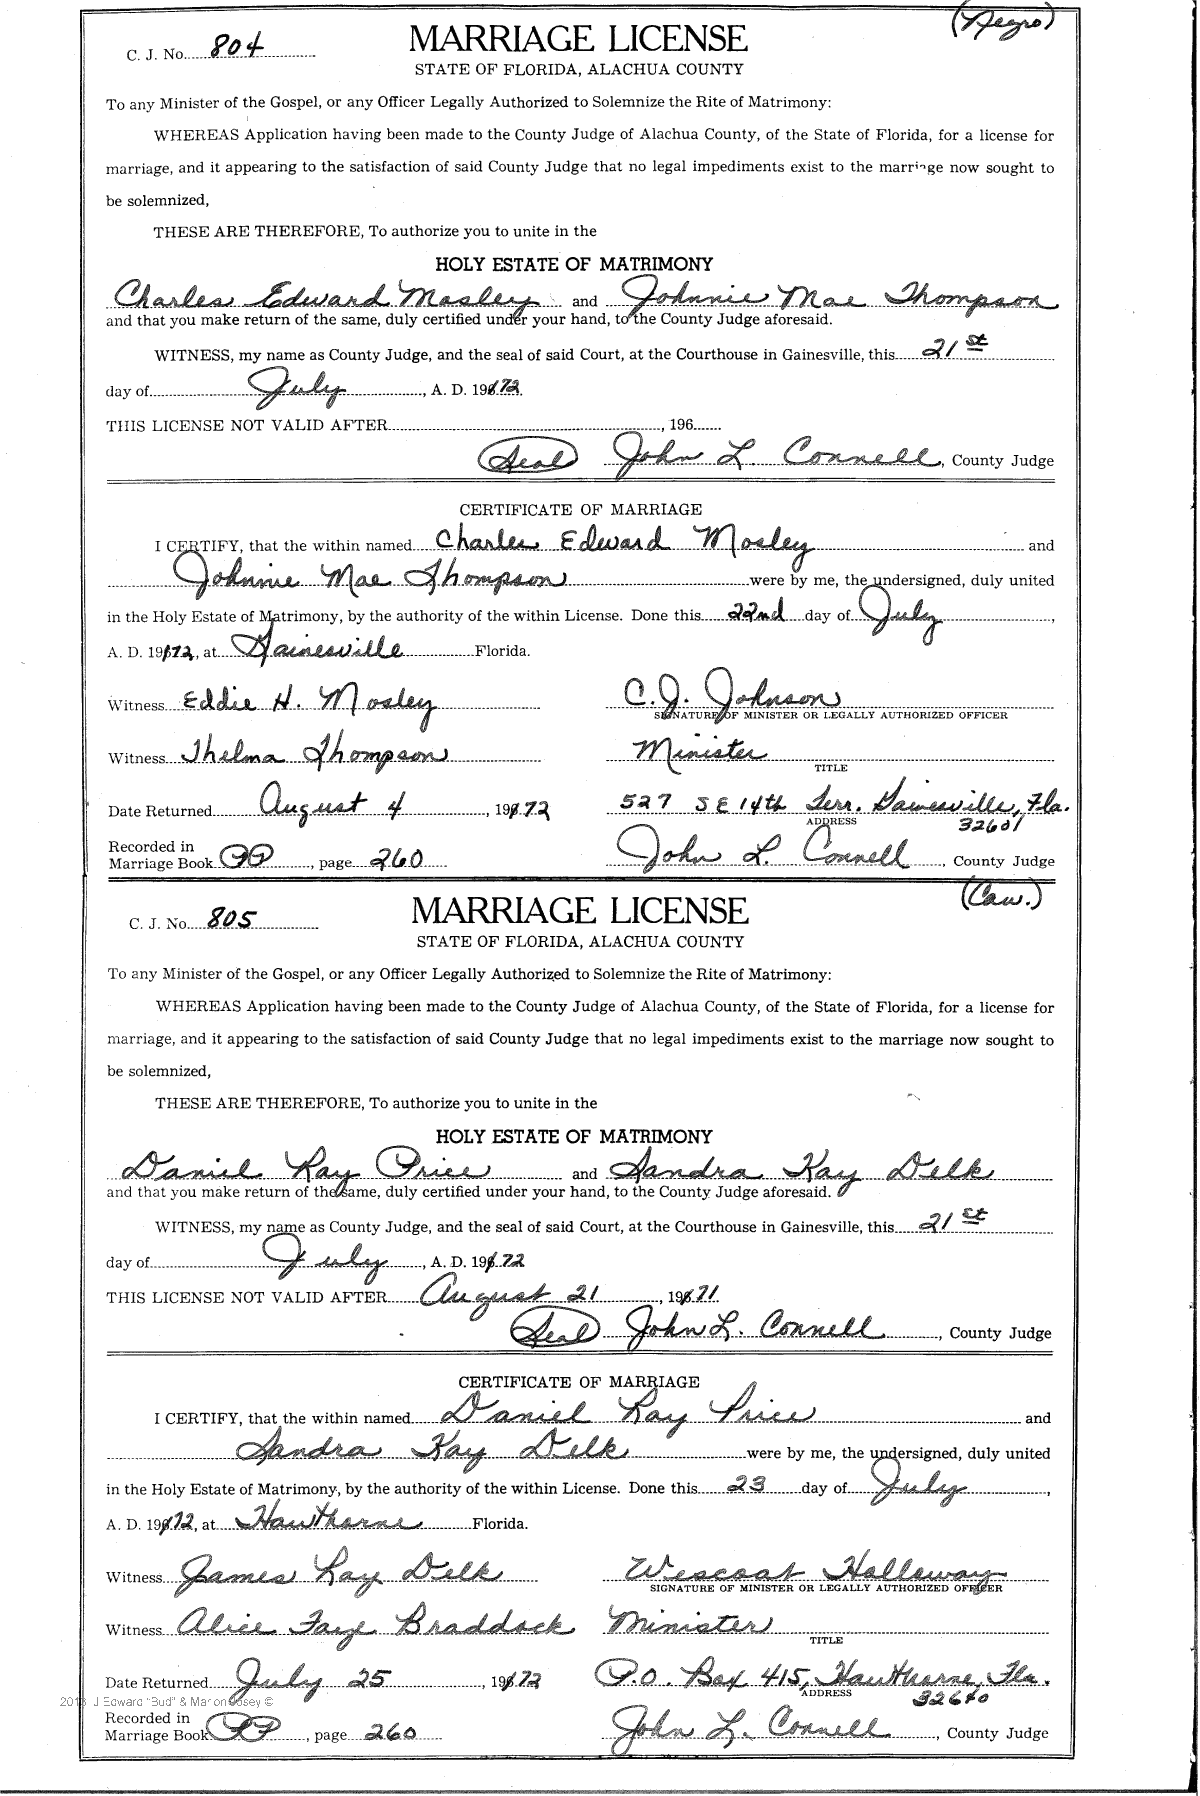 (Negro)
C. J. No. 804 MARRIAGE LICENSE
STATE OF FLORIDA, ALACHUA COUNTY
To any Minister of the Gospel, or any Officer Legally Authorized to Solemnize the Rite of Matrimony:
WHEREAS Application having been made to the County Judge of Alachua County, of the State of Florida, for a license for
marriage, and it appearing to the satisfaction of said County Judge that no legal impediments exist to the marriage now sought to
be solemnized,
THESE ARE THEREFORE, To authorize you to unite in the
HOLY ESTATE OF MATRIMONY
Charles Edward Mosley and Johnnie Mae Thompson
and that you make return of the same, duly certified under your hand, to the County Judge aforesaid.
WITNESS, my name as County Judge, and the seal of said Court, at the Courthouse in Gainesville, this 21st
day of July, A. D. 1972.
THIS LICENSE NOT VALID AFTER, 196
(Seal) John L. Connell, County Judge
CERTIFICATE OF MARRIAGE
I CERTIFY, that the within named Charles Edward Mosley and
Johnnie Mae Thompson were by me, the undersigned, duly united
in the Holy Estate of Matrimony, by the authority of the within License. Done this 22nd day of July,
A. D. 1972, at Gainesville Florida.
Witness Eddie H. Mosley C. J. Johnson
SIGNATURE OF MINISTER OR LEGALLY AUTHORIZED OFFICER
Witness Thelma Thompson Minister
TITLE
Date Returned August 4, 1972 527 SE 14th Terr. Gainesville, Fla.
ADDRESS 32601
Recorded in
Marriage Book PP, page 260 John L. Connell, County Judge
(Cau.)
C. J. No. 805 MARRIAGE LICENSE
STATE OF FLORIDA, ALACHUA COUNTY
To any Minister of the Gospel, or any Officer Legally Authorized to Solemnize the Rite of Matrimony:
WHEREAS Application having been made to the County Judge of Alachua County, of the State of Florida, for a license for
marriage, and it appearing to the satisfaction of said County Judge that no legal impediments exist to the marriage now sought to
be solemnized,
THESE ARE THEREFORE, To authorize you to unite in the
HOLY ESTATE OF MATRIMONY
Daniel Ray Price and Sandra Kay Delk
and that you make return of the same, duly certified under your hand, to the County Judge aforesaid.
WITNESS, my name as County Judge, and the seal of said Court, at the Courthouse in Gainesville, this 21st
day of July, A. D. 1972
THIS LICENSE NOT VALID AFTER August 21, 1971
(Seal) John L. Connell, County Judge
CERTIFICATE OF MARRIAGE
I CERTIFY, that the within named Daniel Ray Price and
Sandra Kay Delk were by me, the undersigned, duly united
in the Holy Estate of Matrimony, by the authority of the within License. Done this 23 day of July,
A. D. 1972, at Hawthorne Florida.
Witness James Ray Delk Wescoat Holloway
SIGNATURE OF MINISTER OR LEGALLY AUTHORIZED OFFICER
Witness Alice Faye Braddock Minister
TITLE
Date Returned July 25, 1972 P.O. Box 415, Hawthorne, Fla.
2013 J Edward "Bud" & Marion Josey © ADDRESS 32640
Recorded in
Marriage Book PP, page 260 John L. Connell, County Judge